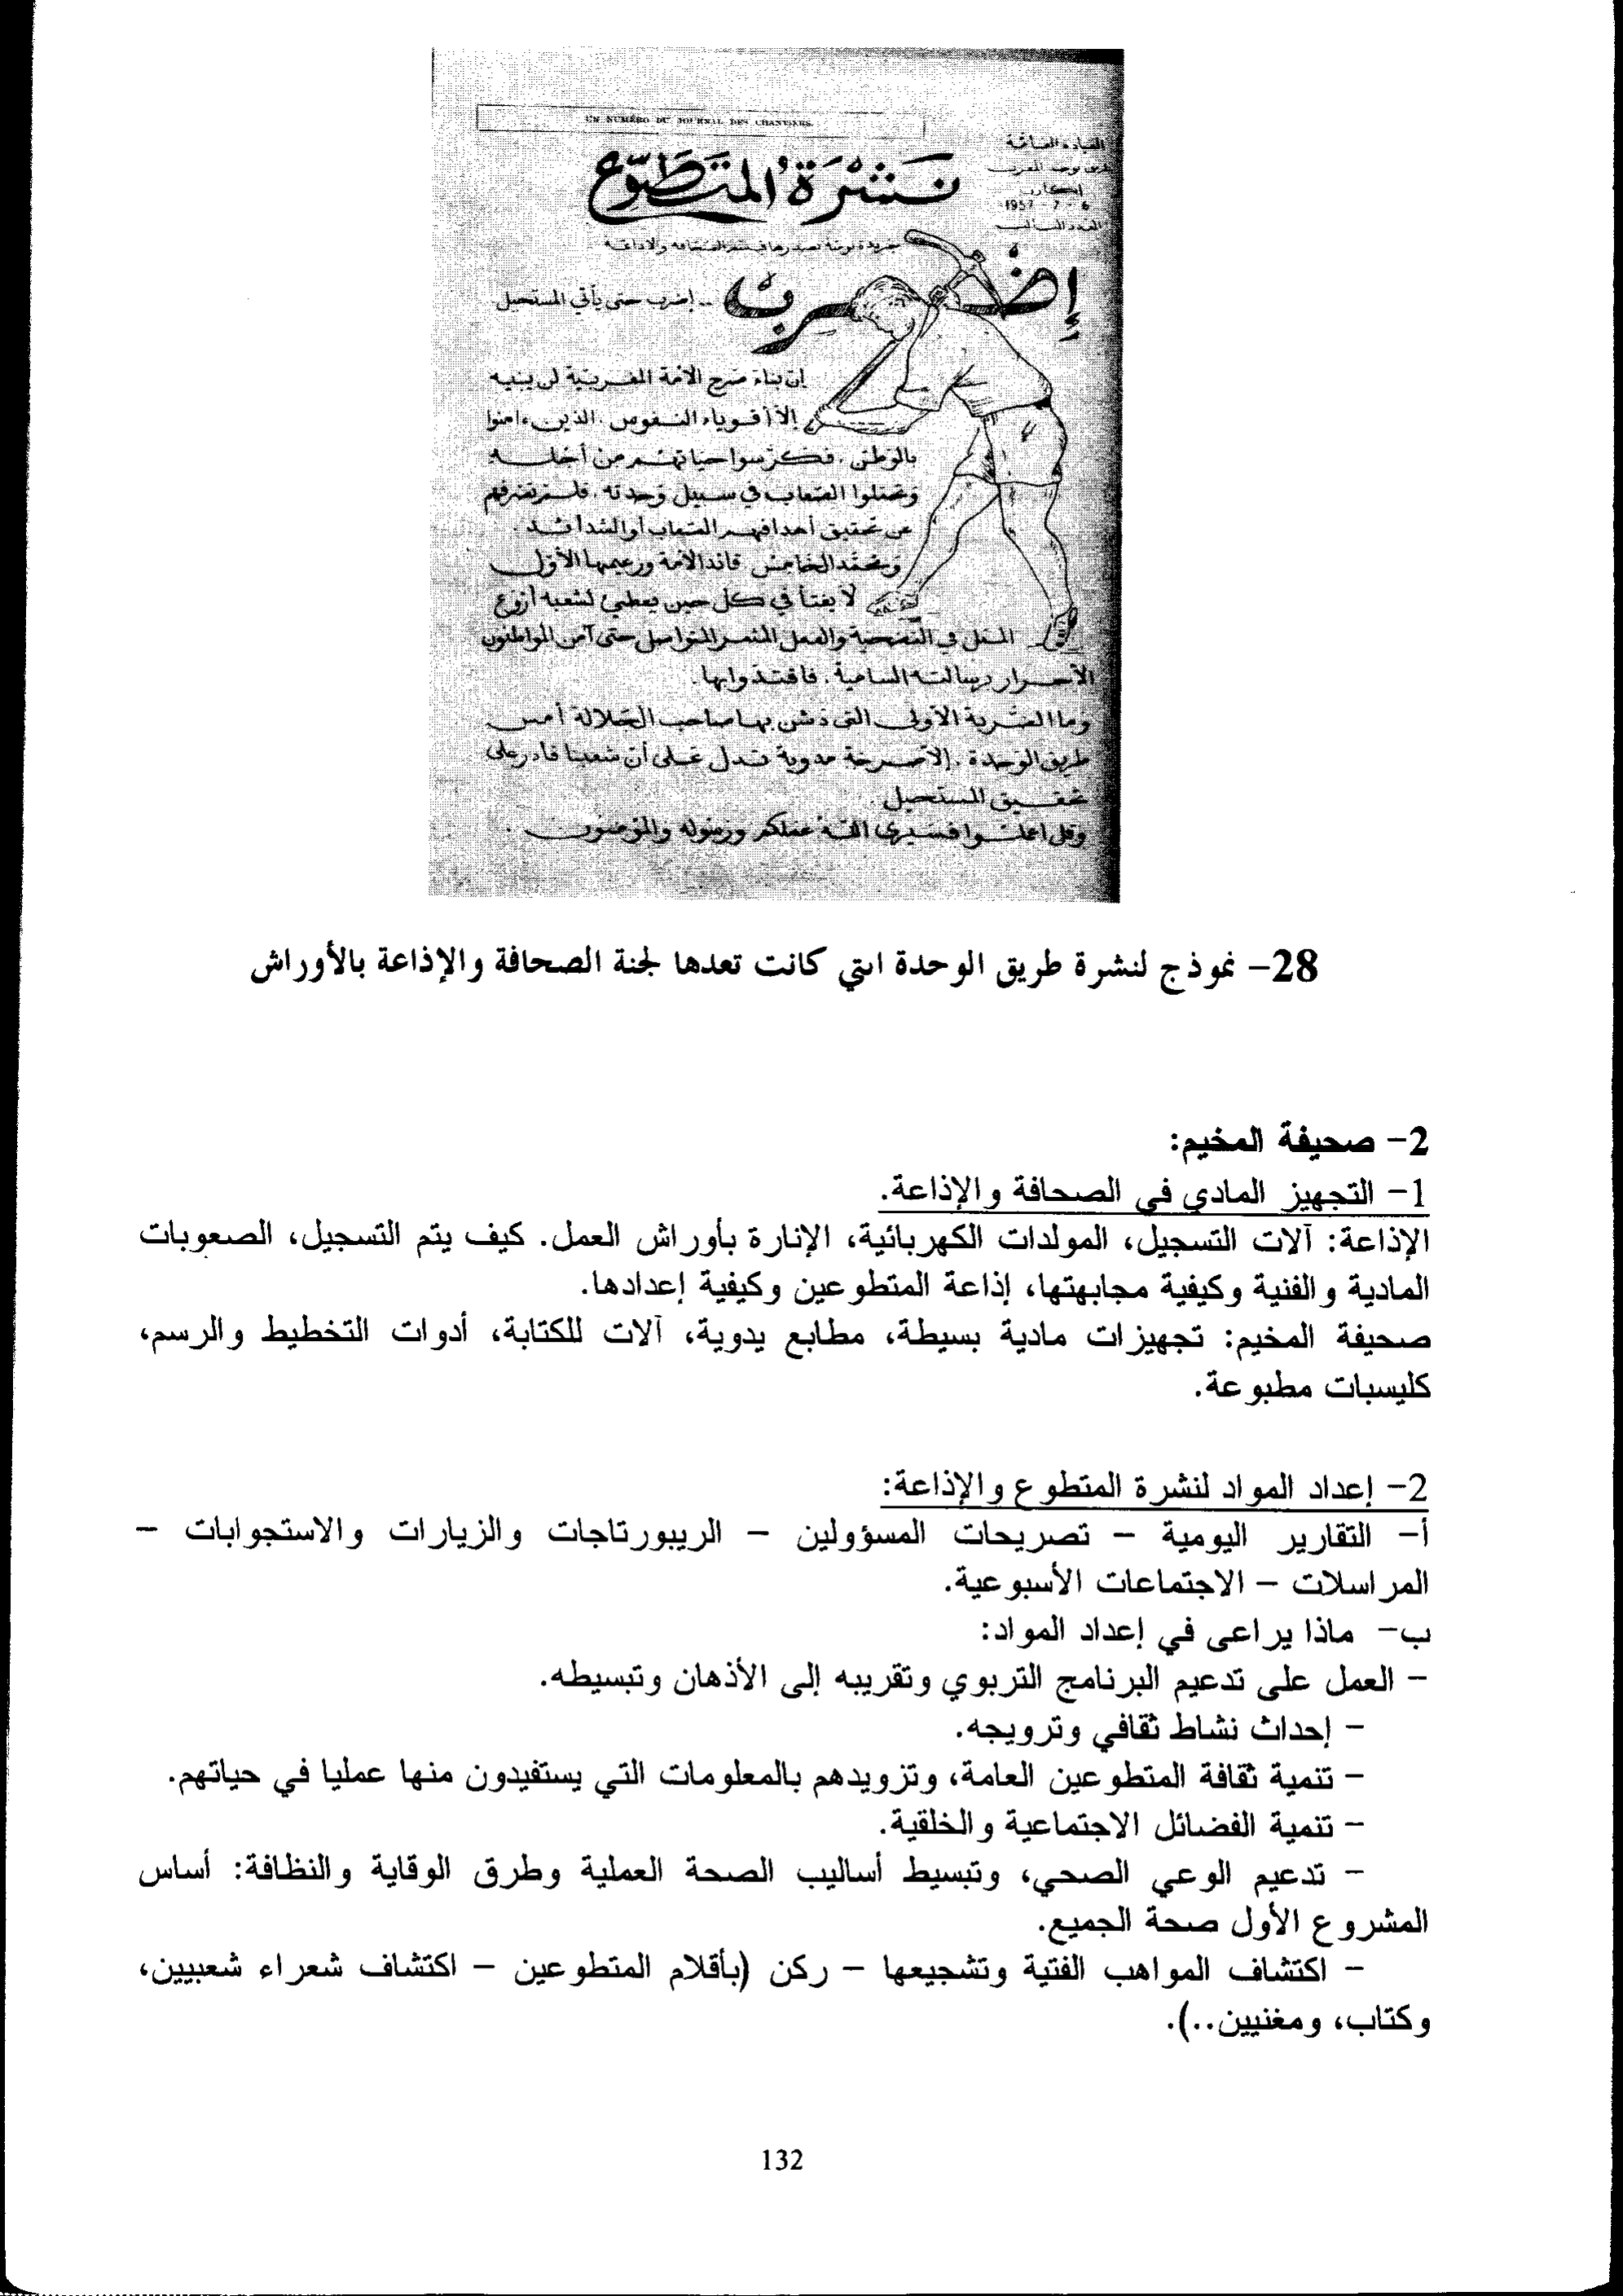 UN NUMÉRO DU JOURNAL DES CHANTIERS
القيادة العامة
إيكاون
6 - 7 - 1957
العدد الثالث
نَشْرَةُ المتَطَوِّع
جريدة يومية يصدرها قسم الصحافة والاذاعة
إِضْرِبْ
.. إضرب حتى يأتي المستحيل
إن بناء صرح الأمة المغربية لن يبنيه
إلا أقوياء النفوس، الذين ءامنوا
بالوطن، فكرسوا حياتهم من أجله
وتحملوا الصعاب في سبيل وحدته، فلم تصرفهم
عن تحقيق أهدافهم الصعاب أو الشدائد.
ومحمد الخامس قائد الأمة وزعيمها الأول
لا يفتأ في كل حين يعطي لشعبه أروع
المثل في التضحية والعمل المثمر المتواصل حتى آمن المواطنون
الأحرار برسالته السامية، فاقتدوا بها.
وما الضربة الأولى التي دشن بها صاحب الجلالة أمس
طريق الوحدة، إلا صرخة مدوية تدل على أن شعبنا قادر على
تحقيق المستحيل.
وقل اعملوا فسيرى الله عملكم ورسوله والمؤمنون.
28- نموذج لنشرة طريق الوحدة التي كانت تعدها لجنة الصحافة والإذاعة بالأوراش
2- صحيفة المخيم:
1- التجهيز المادي في الصحافة والإذاعة.
الإذاعة: آلات التسجيل، المولدات الكهربائية، الإنارة بأوراش العمل. كيف يتم التسجيل، الصعوبات
المادية والفنية وكيفية مجابهتها، إذاعة المتطوعين وكيفية إعدادها.
صحيفة المخيم: تجهيزات مادية بسيطة، مطابع يدوية، آلات للكتابة، أدوات التخطيط والرسم،
كليسبات مطبوعة.
2- إعداد المواد لنشرة المتطوع والإذاعة:
أ- التقارير اليومية – تصريحات المسؤولين – الريبورتاجات والزيارات والاستجوابات –
المراسلات – الاجتماعات الأسبوعية.
ب- ماذا يراعى في إعداد المواد:
– العمل على تدعيم البرنامج التربوي وتقريبه إلى الأذهان وتبسيطه.
– إحداث نشاط ثقافي وترويجه.
– تنمية ثقافة المتطوعين العامة، وتزويدهم بالمعلومات التي يستفيدون منها عمليا في حياتهم.
– تنمية الفضائل الاجتماعية والخلقية.
– تدعيم الوعي الصحي، وتبسيط أساليب الصحة العملية وطرق الوقاية والنظافة: أساس
المشروع الأول صحة الجميع.
– اكتشاف المواهب الفتية وتشجيعها – ركن (بأقلام المتطوعين – اكتشاف شعراء شعبيين،
وكتاب، ومغنيين..).
132